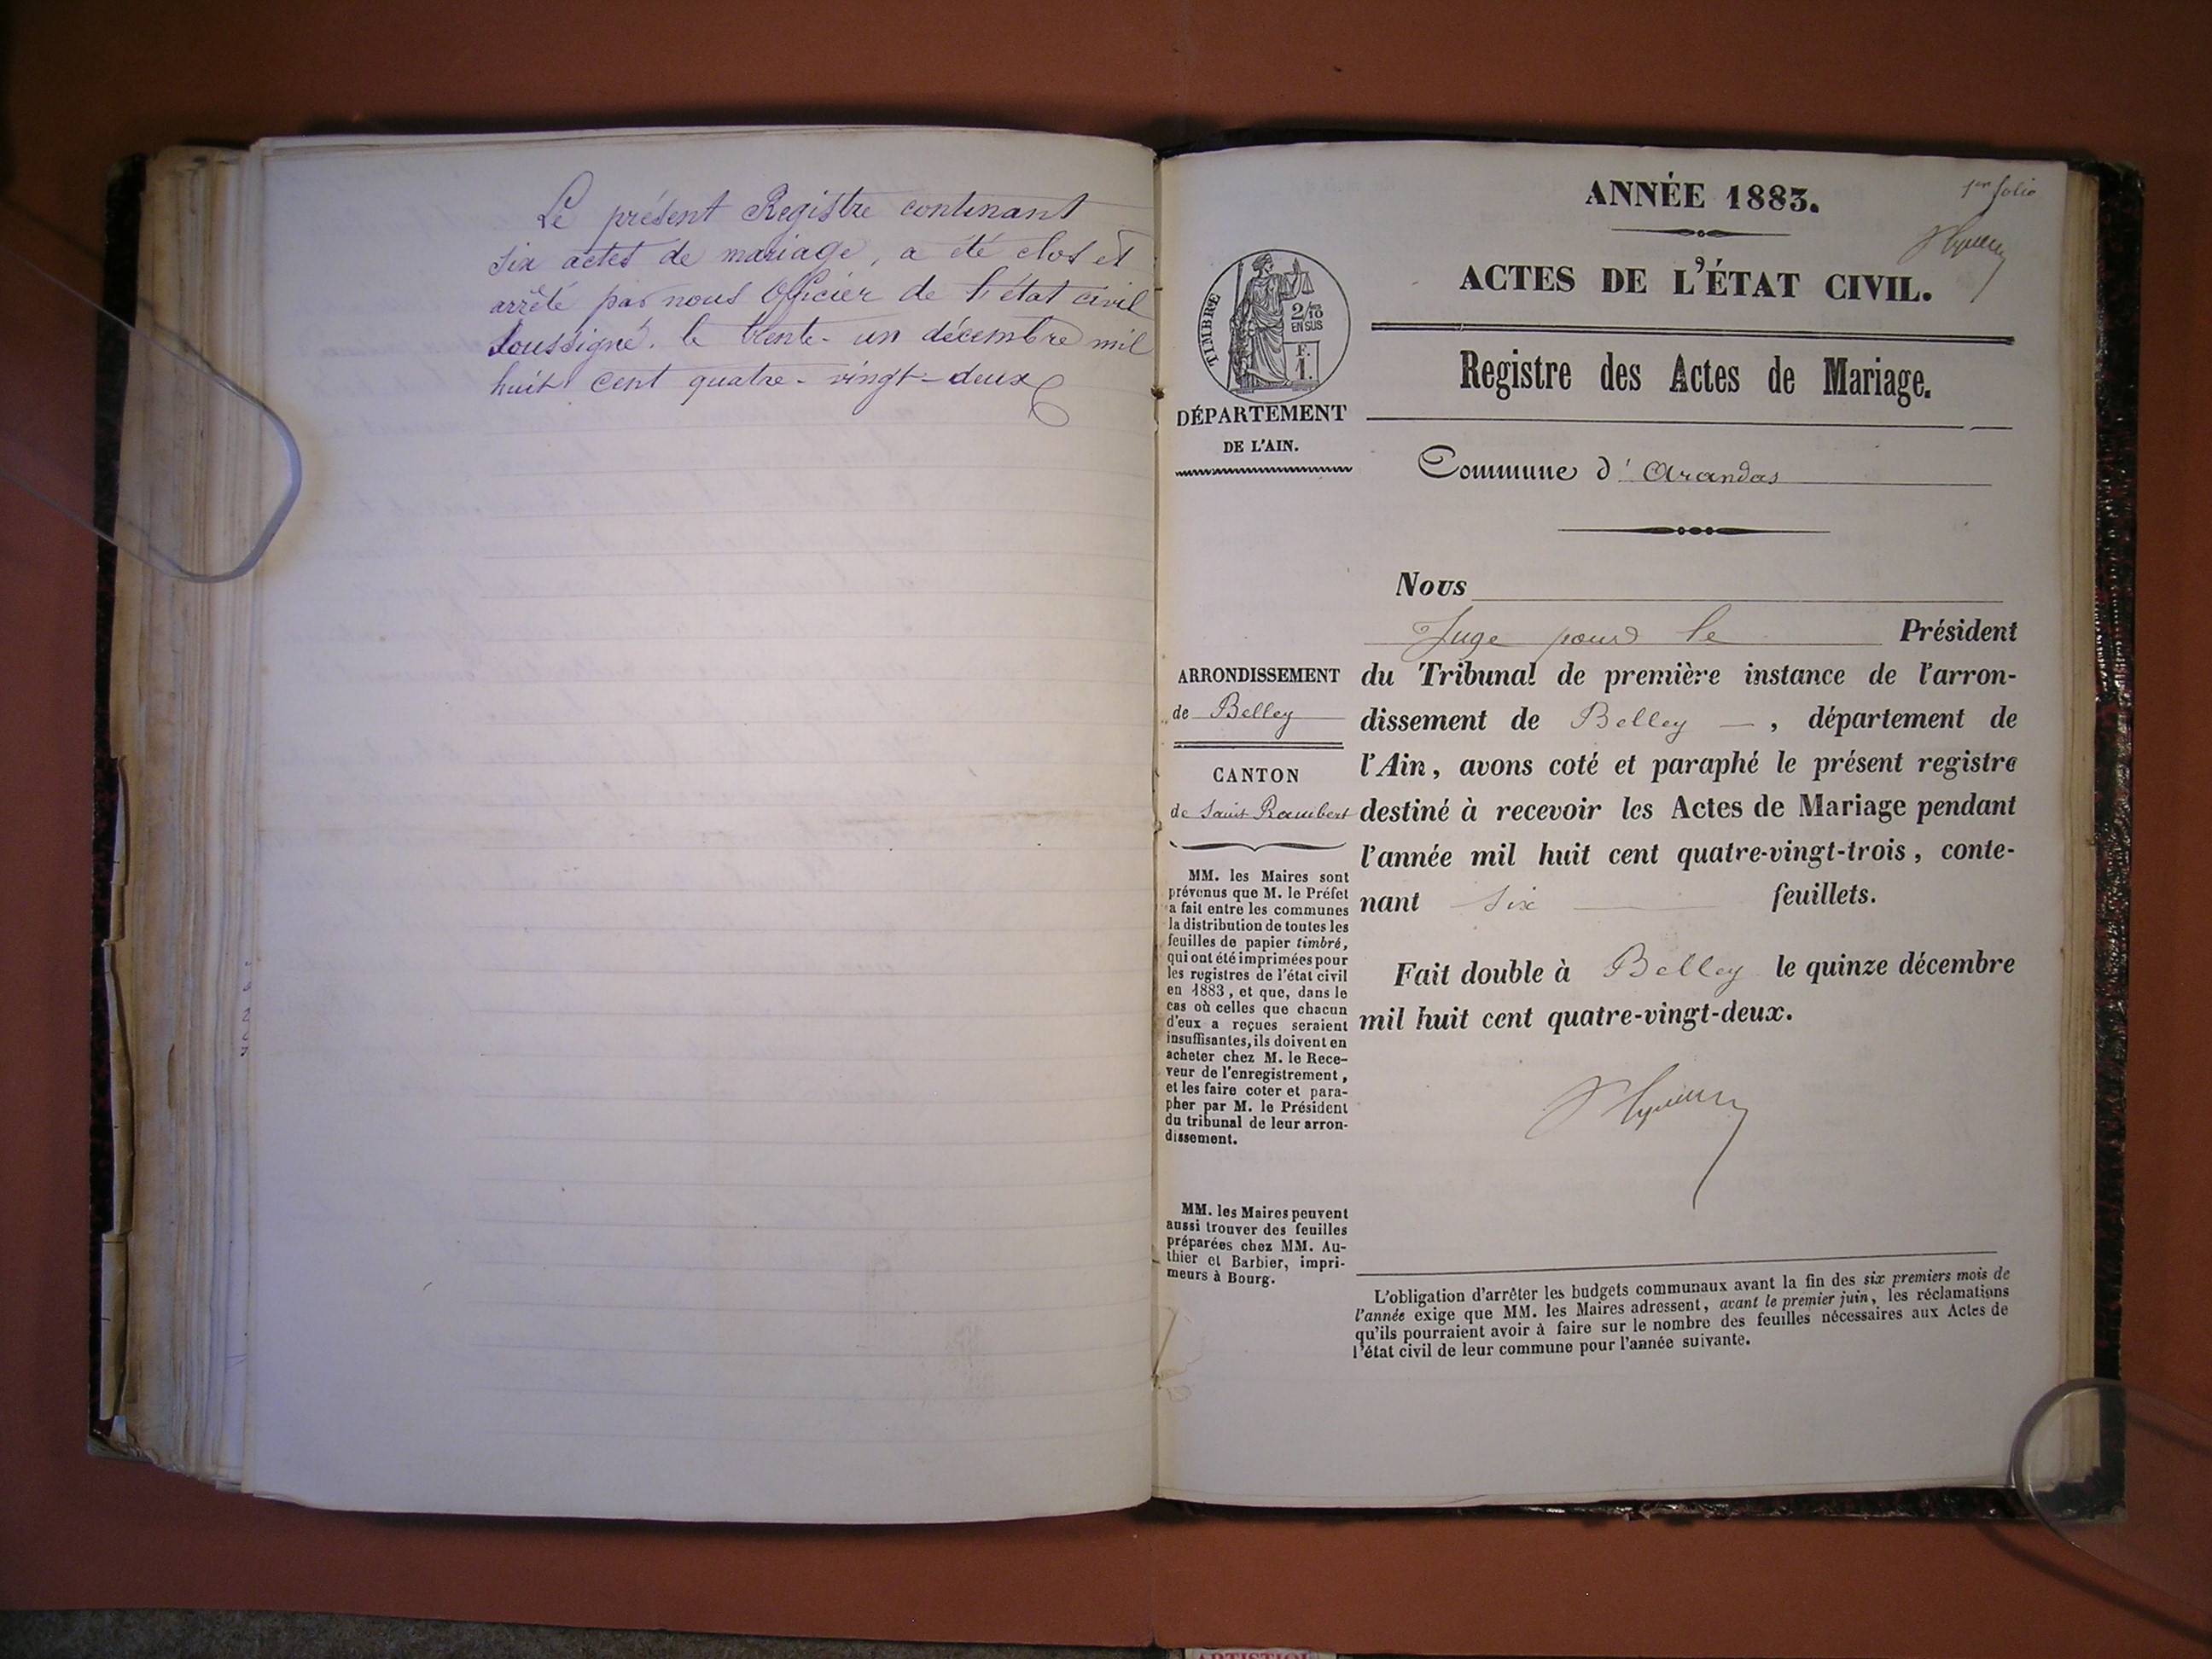 Le présent Registre contenant
six actes de mariage, a été clos et
arrêté par nous Officier de l'état civil
soussigné. le trente-un décembre mil
huit cent quatre-vingt-deux
1er folio
ANNÉE 1883.
ACTES DE L'ÉTAT CIVIL.
Registre des Actes de Mariage.
TIMBRE
2/10
EN SUS
F.
1.
DÉPARTEMENT
DE L'AIN.
Commune d'Arandas
ARRONDISSEMENT
de Belley
CANTON
de Saint Rambert
MM. les Maires sont
prévenus que M. le Préfet
a fait entre les communes
la distribution de toutes les
feuilles de papier timbré,
qui ont été imprimées pour
les registres de l'état civil
en 1883, et que, dans le
cas où celles que chacun
d'eux a reçues seraient
insuffisantes, ils doivent en
acheter chez M. le Rece-
veur de l'enregistrement,
et les faire coter et para-
pher par M. le Président
du tribunal de leur arron-
dissement.
MM. les Maires peuvent
aussi trouver des feuilles
préparées chez MM. Au-
thier et Barbier, impri-
meurs à Bourg.
Nous
Juge pour le Président
du Tribunal de première instance de l'arron-
dissement de Belley —, département de
l'Ain, avons coté et paraphé le présent registre
destiné à recevoir les Actes de Mariage pendant
l'année mil huit cent quatre-vingt-trois, conte-
nant six feuillets.
Fait double à Belley le quinze décembre
mil huit cent quatre-vingt-deux.
L'obligation d'arrêter les budgets communaux avant la fin des six premiers mois de
l'année exige que MM. les Maires adressent, avant le premier juin, les réclamations
qu'ils pourraient avoir à faire sur le nombre des feuilles nécessaires aux Actes de
l'état civil de leur commune pour l'année suivante.